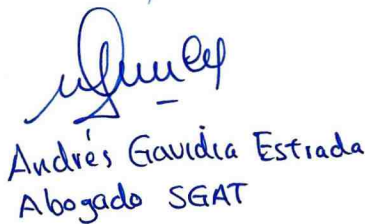 Andrés Gavidia Estrada
Abogado SGAT